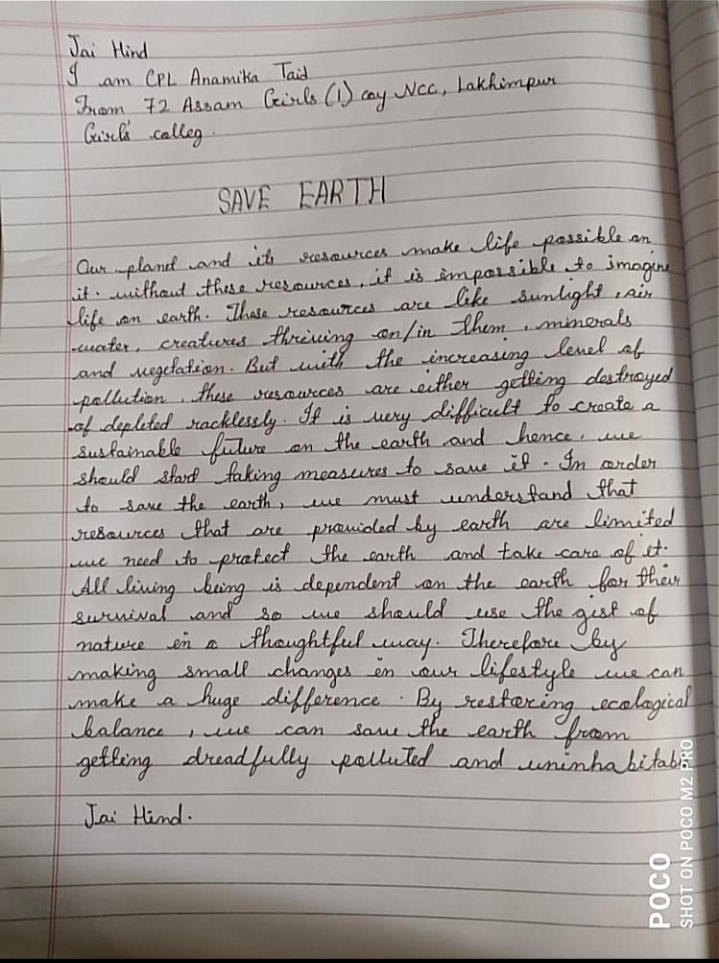 Jai Hind
I am CPL Anamika Taid
From 72 Assam Girls (1) coy NCC, Lakhimpur
Girls' colleg.
SAVE EARTH
Our planet and its resources make life possible on
it. without these resources, it is impossible to imagine
life on earth. These resources are like sunlight, air
water, creatures thriving on/in them, minerals
and vegetation. But with the increasing level of
pollution, these resources are either getting destroyed
of depleted racklessly. It is very difficult to create a
sustainable future on the earth and hence, we
should start taking measures to save it. In order
to save the earth, we must understand that
resources that are provided by earth are limited
we need to protect the earth and take care of it.
All living being is dependent on the earth for their
survival and so we should use the gist of
nature in a thoughtful way. Therefore by
making small changes in our lifestyle we can
make a huge difference. By restoring ecological
balance, we can save the earth from
getting dreadfully polluted and uninhabitable.
Jai Hind.
POCO
SHOT ON POCO M2 PRO